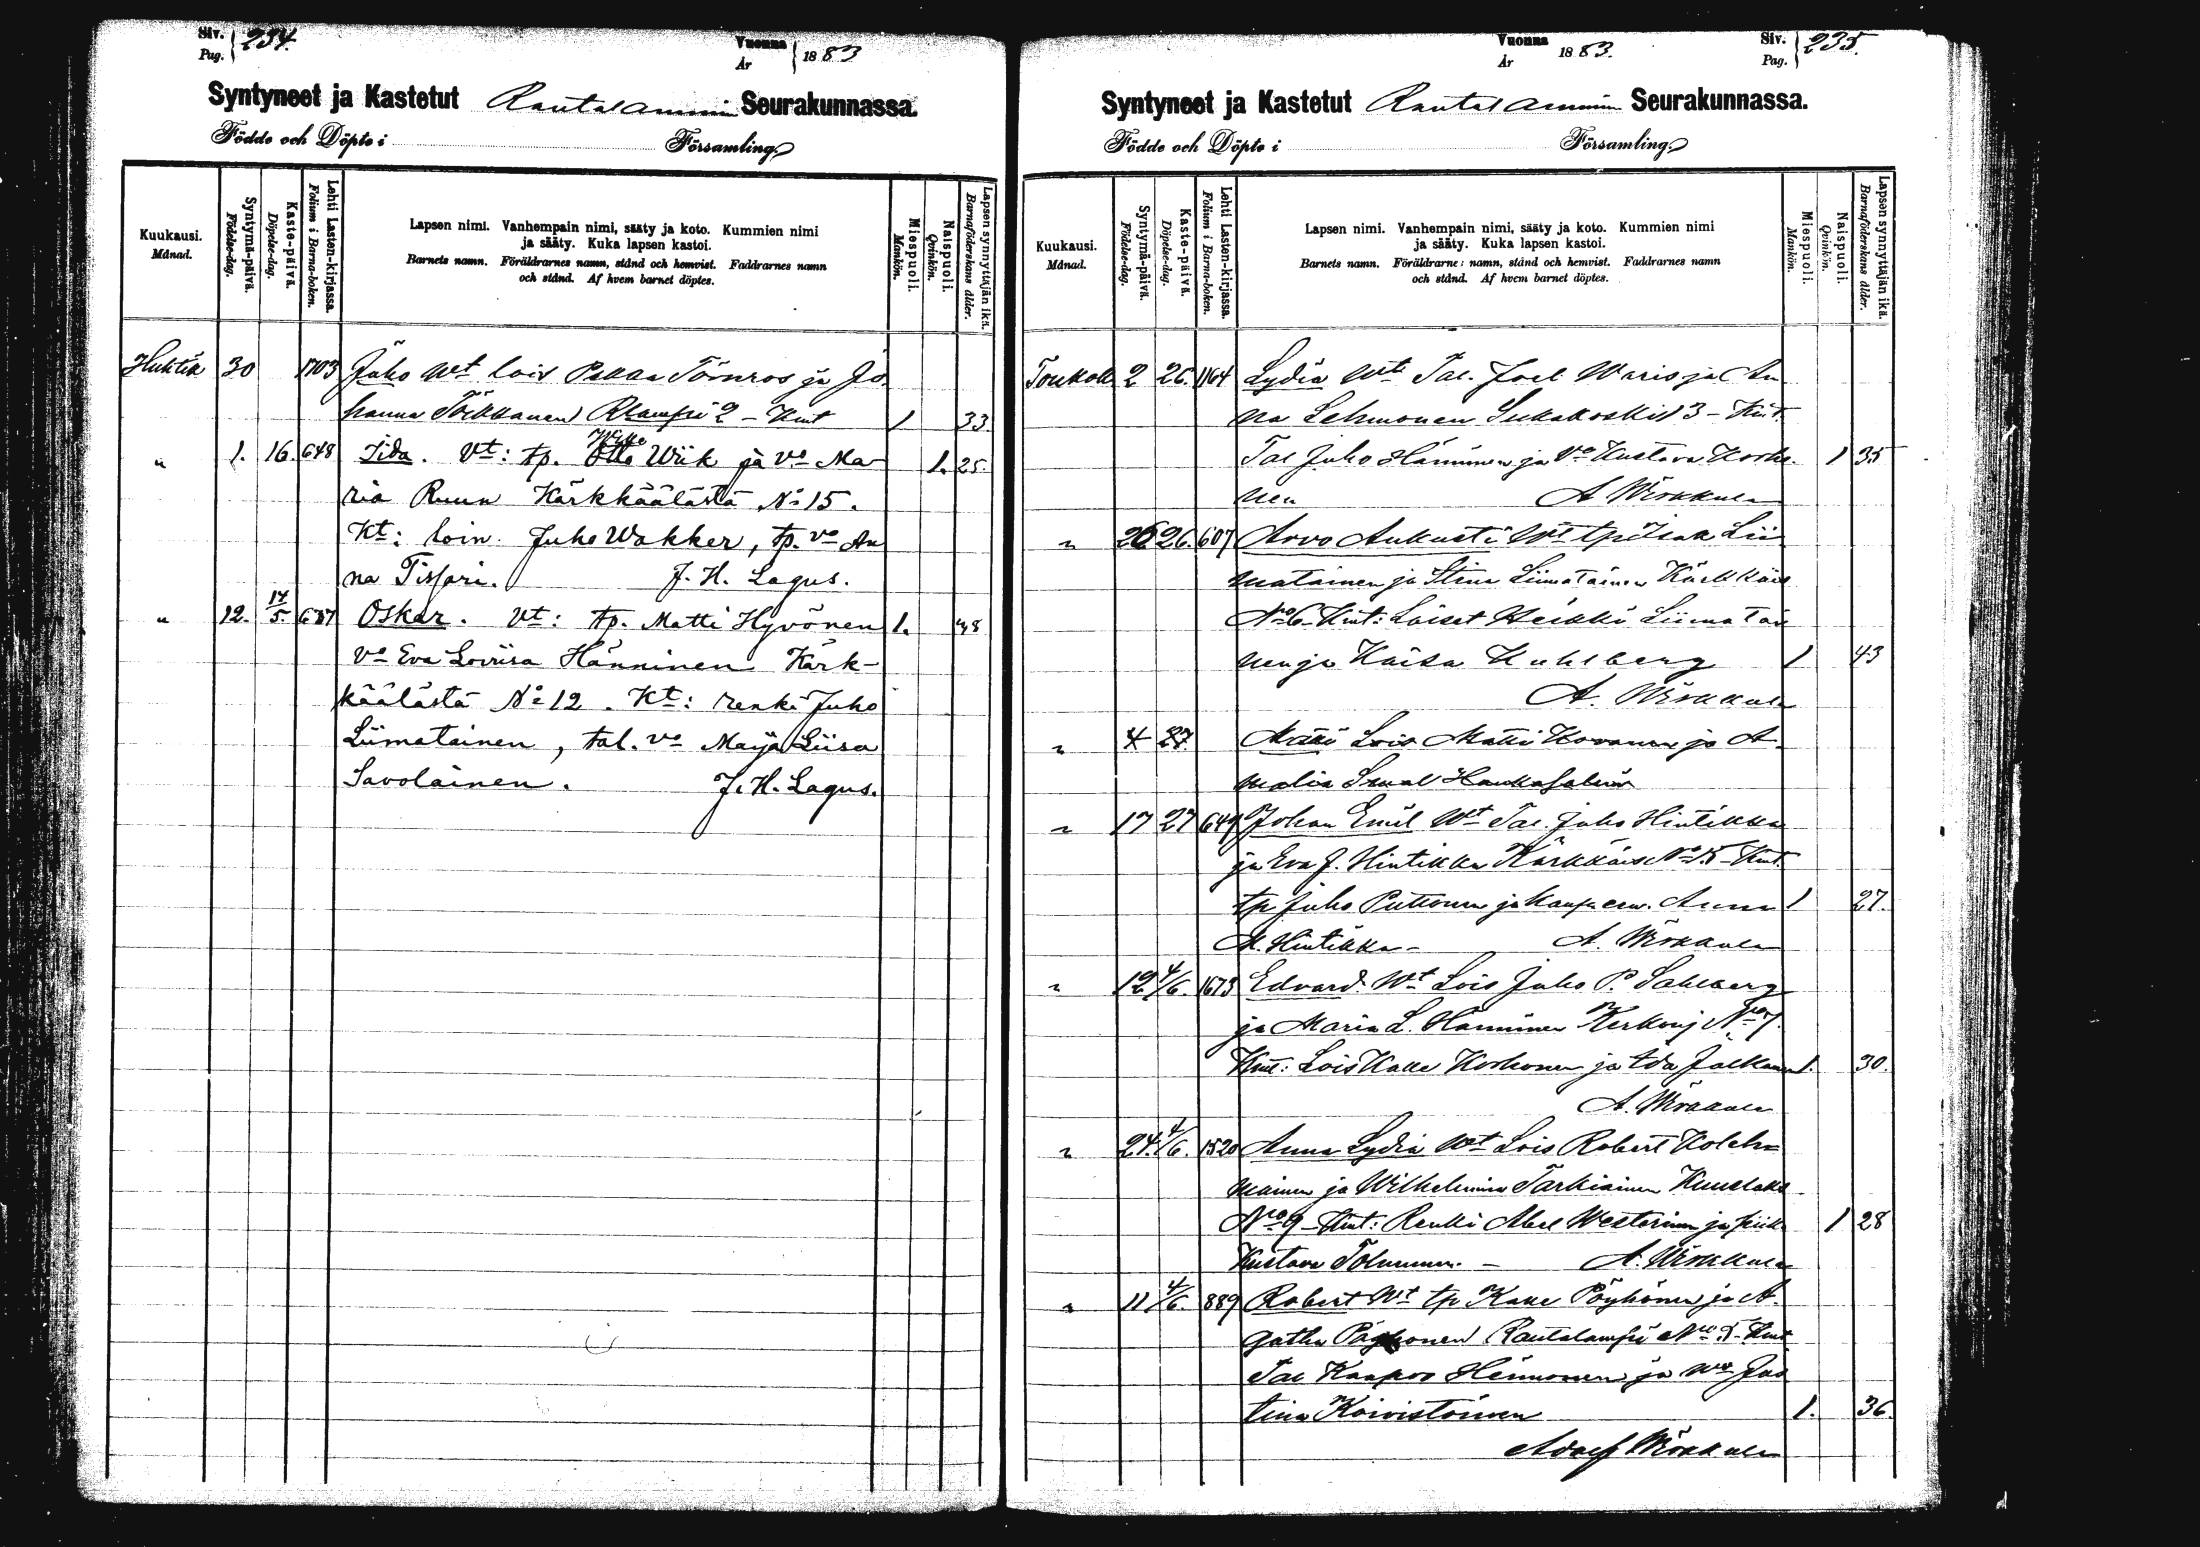 Siv.
Pag. 234.
Vuonna
År 1883
Syntyneet ja Kastetut Rautalammin Seurakunnassa.
Födde och Döpte i Församling
Kuukausi.
Månad.
Syntymä-päivä.
Födelse-dag.
Kaste-päivä.
Döpelse-dag.
Lehti Lasten-kirjassa.
Folium i Barna-boken.
Lapsen nimi. Vanhempain nimi, sääty ja koto. Kummien nimi
ja sääty. Kuka lapsen kastoi.
Barnets namn. Föräldrarnes namn, stånd och hemvist. Faddrarnes namn
och stånd. Af hvem barnet döptes.
Miespuoli.
Mankön.
Naispuoli.
Qvinkön.
Lapsen synnyttäjän ikä.
Barnaföderskans ålder.
Huhtik 30 1703 Juho Wt lois Pekka Törnros ja Jo-
hanna Törkkanen Rlampi 2 - Kmt 1 33.
" 1. 16. 648 Iida. Vt: tp. Otto Wiik ja vo Ma- 1. 25.
ria Ruun Kärkkäälästä No 15.
Kt: loin. Juho Wakker, tp. vo An
na Tissari. J. H. Lagus.
" 12. 14/5. 687 Oskar. Vt: tp. Matti Hyvönen 1. 48
vo Eva Loviisa Hänninen Kärk-
käälästä No 12. Kt: renki Juho
Liimatainen, tal. vo Maija Liisa
Savolainen. J. H. Lagus.
Vuonna
År 1883.
Siv.
Pag. 235.
Syntyneet ja Kastetut Rautalammin Seurakunnassa.
Födde och Döpte i Församling
Kuukausi.
Månad.
Syntymä-päivä.
Födelse-dag.
Kaste-päivä.
Döpelse-dag.
Lehti Lasten-kirjassa.
Folium i Barna-boken.
Lapsen nimi. Vanhempain nimi, sääty ja koto. Kummien nimi
ja sääty. Kuka lapsen kastoi.
Barnets namn. Föräldrarne: namn, stånd och hemvist. Faddrarnes namn
och stånd. Af hvem barnet döptes.
Miespuoli.
Mankön.
Naispuoli.
Qvinkön.
Lapsen synnyttäjän ikä.
Barnaföderskans ålder.
Toukok 2 26. 1164 Lydia Wt Tal. Joel Waris ja An
na Lehmonen 13 - Kmt.
Tal Juho Hänninen ja Vo Kustava Korho- 1 35
nen A Wirkkula
" 26 26. 607 Arvo Aukusti Wt tp Isak Lii
matainen ja Stina Liimatainen Kärkkää
No 6 Kmt: Loiset Heikki Liimatai
nen ja Kaisa Kuhlberg 1 43
A. Wirkkula
" 4 27 Antti Lois Matti Kovanen ja A-
malia Hankasalmi
" 17 27 649 Johan Emil Wt Tal. Juho Hintikka
ja Eva J. Hintikka Kärkkäis No 5 - Kmt.
tp Juho Puttonen ja Anna 1 27.
M. Hintikka - A. Wirkkula
" 12 4/6. 1673 Edvard Wt Lois Juho P. Sahlberg
ja Maria L. Hänninen Kerkonj No 7.
Kmt: Lois Kalle Korhonen ja Ida Jalkanen 1. 30.
A. Wirkkula
" 24. 4/6. 1520 Anna Lydia Wt Lois Robert Koleh-
mainen ja Wilhelmina Tarkiainen
No 9 - Kmt: Renki Abel Westerinen ja piika 1 28
Kustava Tolvanen. - A. Wirkkula
" 11 4/6. 889 Robert Wt tp Kalle Pöyhönen ja A-
gatha Pöyhönen Rautalampi No 5 - Kmt
Tal Kaapro Heinonen ja Wo Jus
tina Koivistoinen 1. 36.
Adolf Wirkkula